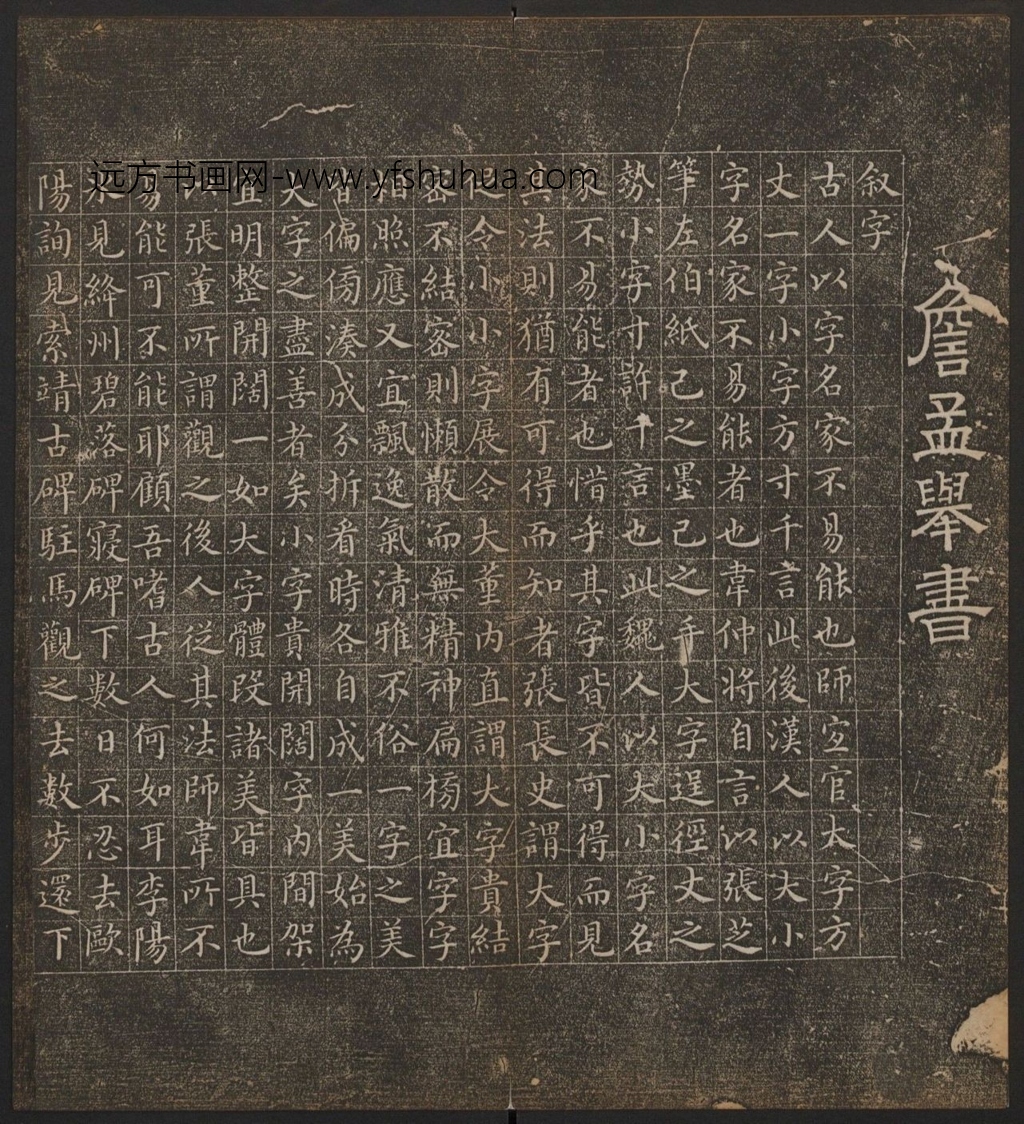 远方书画网-www.yfshuhua.com
詹孟舉書
叙字
古人以字名家不易能也師宜官大字方
丈一字小字方寸千言此後漢人以大小
字名家不易能者也韋仲将自言以張芝
筆左伯紙己之墨己之手大字逞徑丈之
勢小字寸許千言也此魏人以大小字名
家不易能者也惜乎其字皆不可得而見
其法則猶有可得而知者張長史謂大字
促令小小字展令大董内直謂大字貴結
密不結密則懶散而無精神扁榜宜字字
相照應又宜飄逸氣清雅不俗一字之美
皆偏傍湊成分拆看時各自成一美始為
大字之盡善者矣小字貴開闊字内間架
宜明整開闊一如大字體段諸美皆具也
張董所謂觀之後人從其法師韋所不
易能可不能耶顧吾嗜古人何如耳李陽
冰見絳州碧落碑寝碑下數日不忍去歐
陽詢見索靖古碑駐馬觀之去數步還下